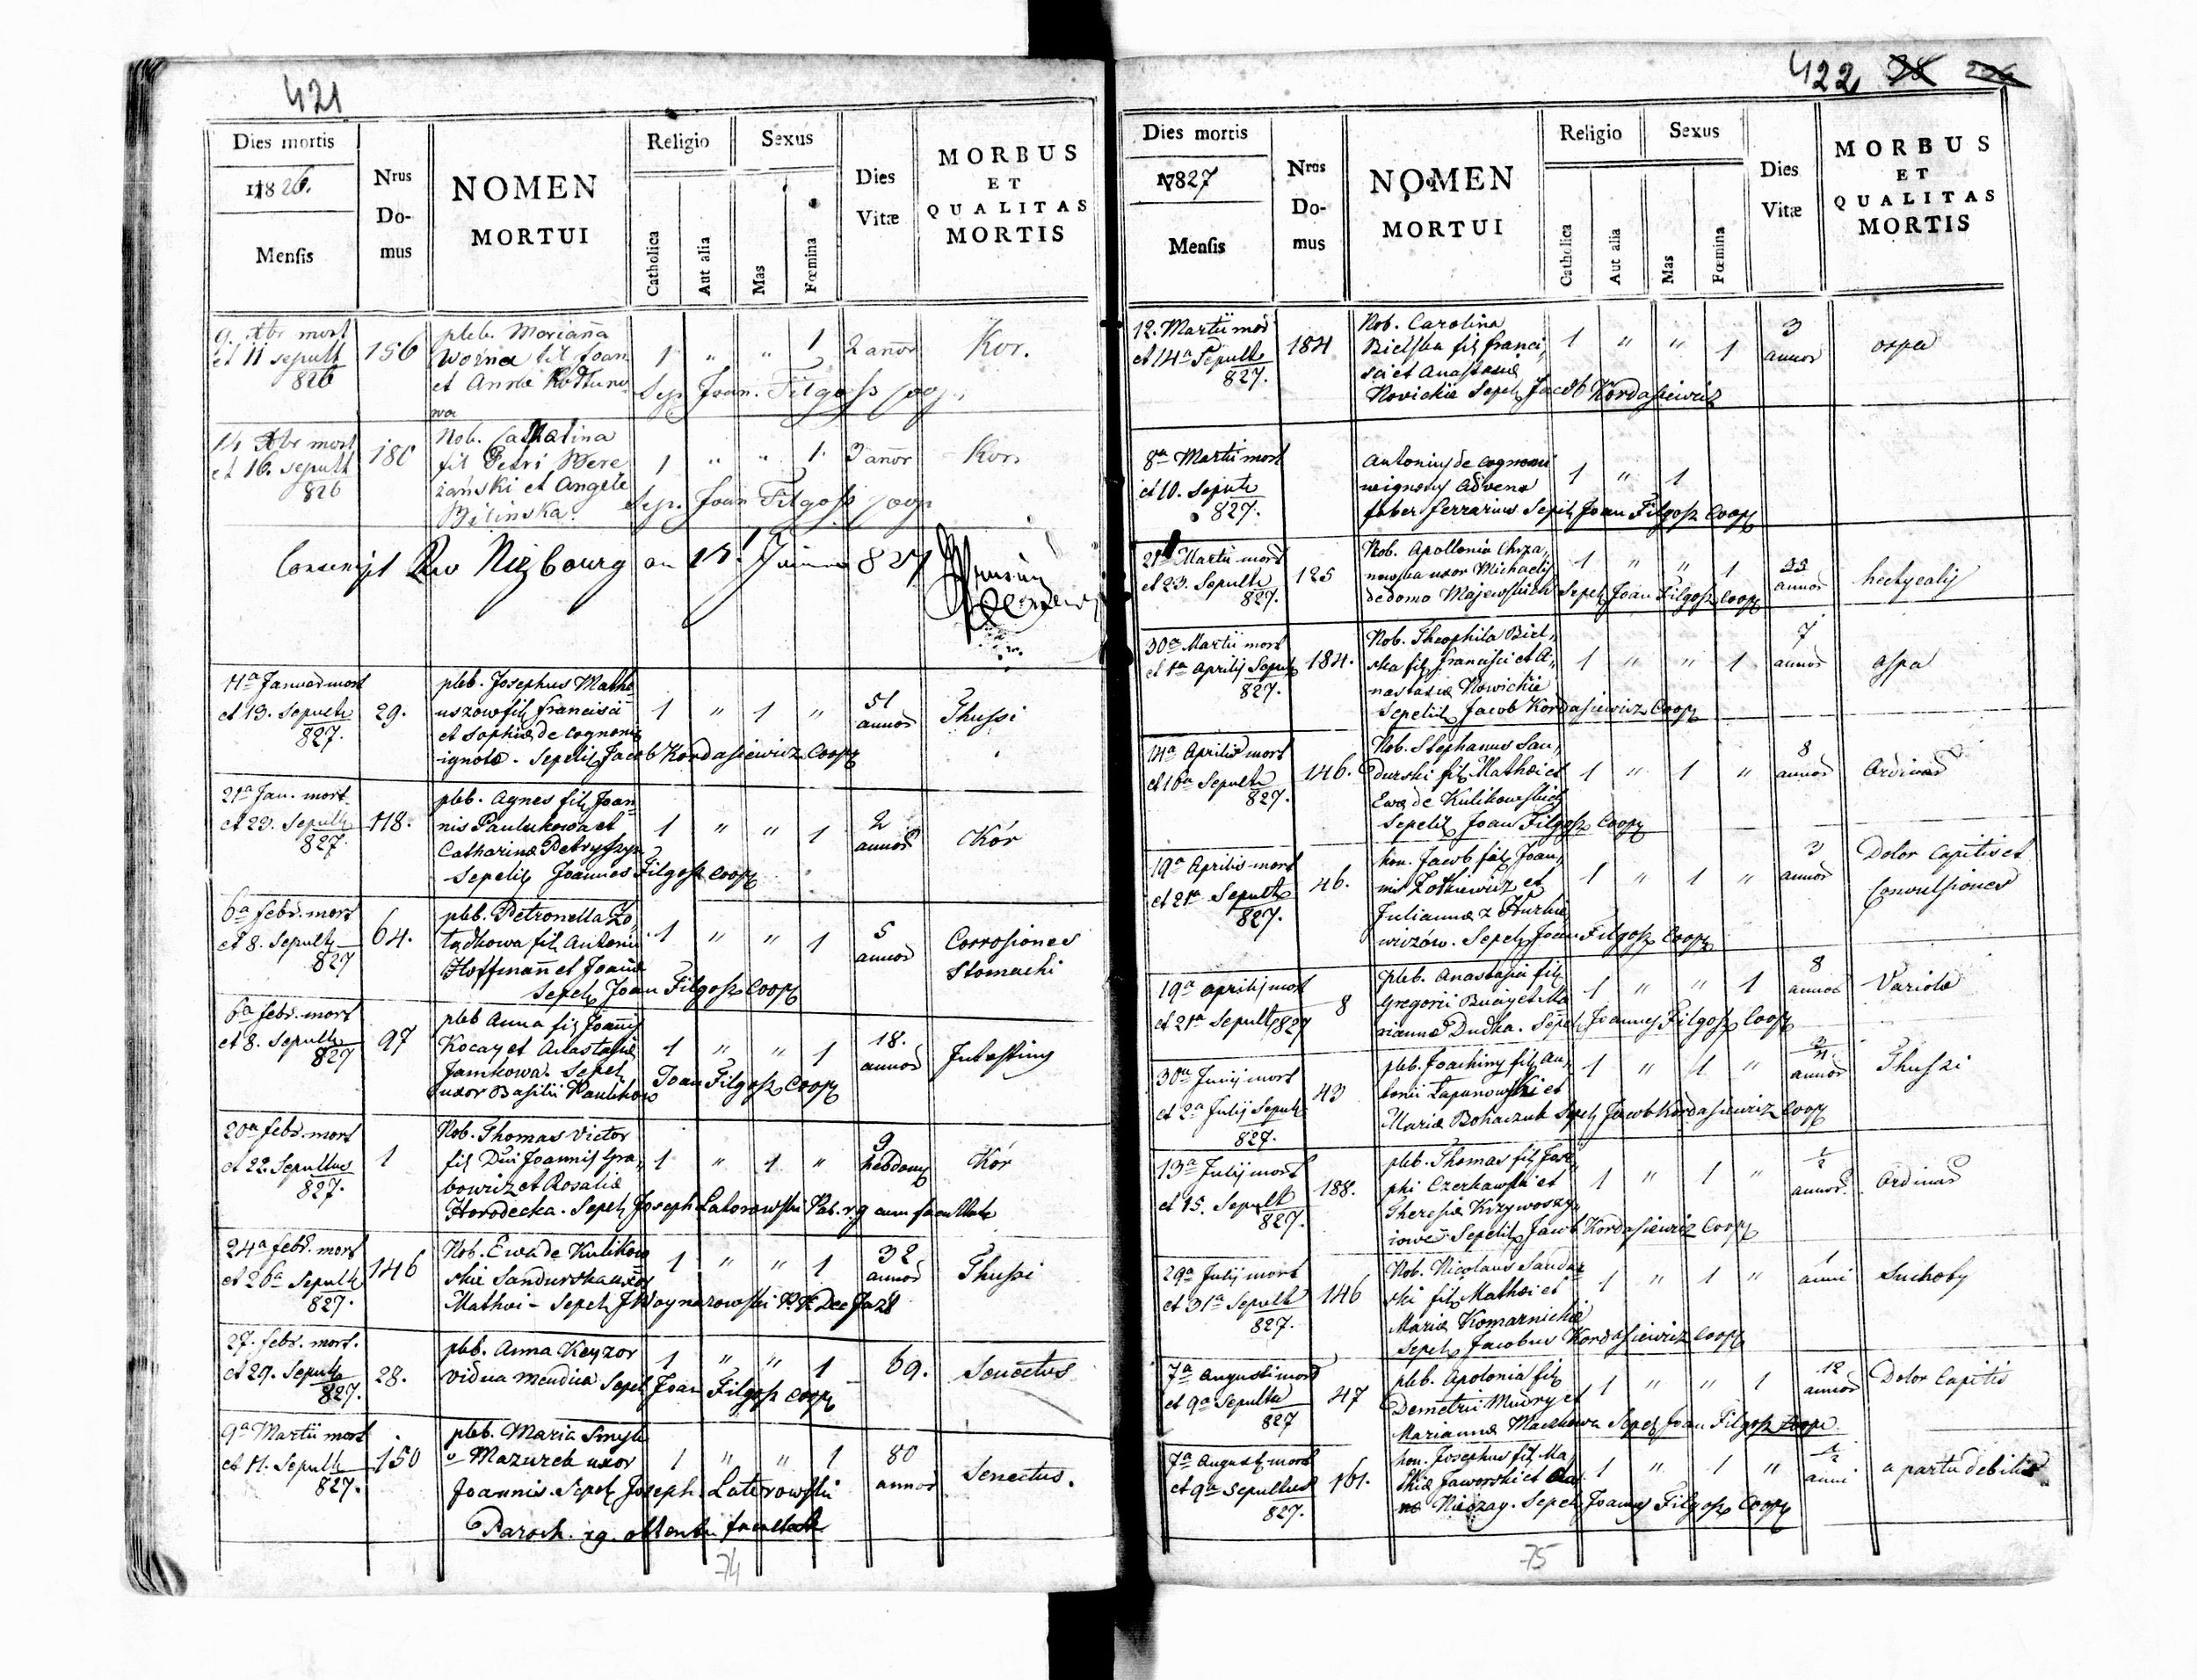 421
Dies mortis
1826.
Mensis
Nrus
Do-
mus
NOMEN
MORTUI
Religio
Catholica
Aut alia
Sexus
Mas
Fœmina
Dies
Vitæ
MORBUS
ET
QUALITAS
MORTIS
9. Xbr mort
et 11 sepult
826
156
pleb. Marianna
Woźna fil Joan
et Anna
1 " " 1
2 annor
Kor.
Sep. Joan. Filgosz Coop.
14 Xbr mort
et 16. sepult
826
180
Nob. Catharina
fil Petri Bere
żański et Angele
Bilinska.
1 " " 1
3 annor
Kor.
Sep. Joan Filgosz Coop
827
11a Januar mort
et 13. Sepult
827.
29.
pleb. Josephus Mathe
uszow fil francisci
et Sophiæ de cognomi
ignota - Sepelit Jacob Kordasiewicz Coop
1 " 1 "
51
annor
Thussi
21a Jan. mort.
et 23. Sepult
827.
118.
pleb. Agnes fil Joan
nis Paulukowa et
Catharinæ Petryszyn
Sepelit Joannes Filgosz Coop
1 " " 1
2
annor
Kór
6a febr. mort
et 8. Sepult
827
64.
pleb. Petronella Żo
łądkowa fil Antonii
Hoffmann et Joannæ
Sepel Joan Filgosz Coop
1 " " 1
5
annor
Corrosiones
Stomachi
6a febr. mort
et 8. Sepult
827
97
pleb Anna fil Joannis
Kocay et Anastasiæ
Jamkowa. Sepel Joan Filgosz Coop
uxor Basilii Paulikow
1 " " 1
18.
annor
20a febr. mort
et 22. Sepultus
827.
1
Nob. Thomas Victor
fil Dni Joannis Gra,
bowicz et Rosaliæ
Horodecka. Sepel Joseph Latorowski Par. r. g cum facultate
1 " 1 "
9
hebdom
Kór
24a febr. mort
et 26a Sepult
827.
146
Nob. Ewa de Kulikow
skie Sandurska uxor
Mathei - Sepel
1 " " 1
32
annor
Thussi
27. febr. mort.
et 29. Sepult
827.
28.
pleb. Anna Keyzor
vidua mendica Sepel Joan Filgosz Coop
1 " " 1
69.
Senectus
9a Martii mort
et 11. Sepult
827.
150
pleb. Maria
Mazurek uxor
Joannis. Sepel Joseph Latorowski
Paroch. rg. obtenta facultate
1 " " 1
80
annor
Senectus.
74
422
Dies mortis
1827
Mensis
Nrus
Do-
mus
NOMEN
MORTUI
Religio
Catholica
Aut alia
Sexus
Mas
Fœmina
Dies
Vitæ
MORBUS
ET
QUALITAS
MORTIS
12. Martii mor
et 14a Sepult
827.
184
Nob. Carolina
Bielska fil franci,
sci et Anastasiæ
Novickie Sepel Jacob Kordasiewicz
1 " " 1
3
annor
ospa
8a Martii mort
et 10. Sepult
827.
Antonius de cognomi
ne ignotus advena
faber ferrarius Sepel Joan Filgosz Coop
1 " 1
21a Martii mort
et 23. Sepult
827.
125
Nob. Apollonia Chrza,
nowska uxor Michaelis
de domo Majewskich Sepel Joan Filgosz Coop
1 " " 1
annor
30a Martii mort
et 1a Aprilis Sepult
827.
184.
Nob. Theophila Biel,
ska fil francisci et A,
nastasiæ Nowickie
Sepelit Jacob Kordasiewicz Coop
1 " " 1
7
annor
ospa
14a Aprilis mort
et 16a Sepult
827.
146.
Nob. Stephanus San,
durski fil Mathei et
Ewæ de Kulikowskich
Sepelit Joan Filgosz Coop
1 " 1 "
8
annor
Ordinar
19a Aprilis mort
et 21a Sepult
827.
46.
hon. Jacob fil Joan,
nis Żotkiewicz et
Juliannæ z
wiczów. Sepel Joan Filgosz Coop
1 " 1 "
3
annor
Dolor Capitis et
Convulsiones
19a aprilis mort
et 21a Sepult 827
8
pleb. Anastasia fil
Gregorii et Ma
rianna Dudka. Sepel Joannes Filgosz Coop
1 " " 1
8
annor
Variola
30a Junij mort
et 2a Julij Sepult
827.
43
pleb. Joachim fil An,
tonii Łapunowski et
Mariæ Bohaczuk Sepel Jacob Kordasiewicz Coop
1 " 1 "
annor
Thussi
13a Julij mort
et 15. Sepult
827.
188.
pleb. Thomas fil Jose
phi Czerkawski et
Theresiæ Krzywoszy,
iowe Sepelit Jacob Kordasiewicz Coop
1 " 1 "
1/2
annor.
Ordinar
29a Julij mort
et 31a Sepult
827.
146
Nob. Nicolaus Sandur
ski fil Mathei et
Mariæ Komarnickie
Sepel Jacobus Kordasiewicz Coop
1 " 1 "
1
anni
Suchoty
7a Augusti mort
et 9a Sepulta
827
47
pleb. Apolonia fil
Demetrii Mudry et
Mariannæ Sepel Joan Filgosz Coop
1 " " 1
12
annor
Dolor Capitis
7a August mort
et 9a Sepultus
827.
161.
hon. Josephus fil Ma
Jaworski et
Sepel Joannes Filgosz Coop
1 " 1 "
1/2
anni
a partu debilis
75